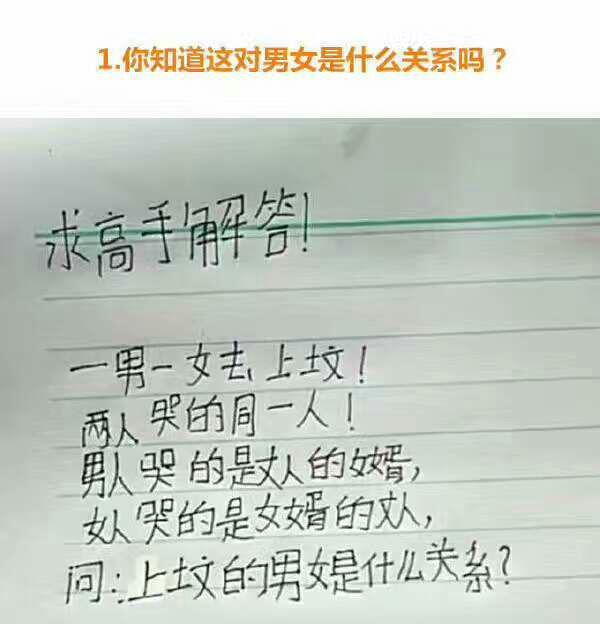 1.你知道这对男女是什么关系吗？
求高手解答！
一男一女去上坟！
两人哭的同一人！
男人哭的是丈人的女婿，
女人哭的是女婿的丈人，
问：上坟的男女是什么关系？